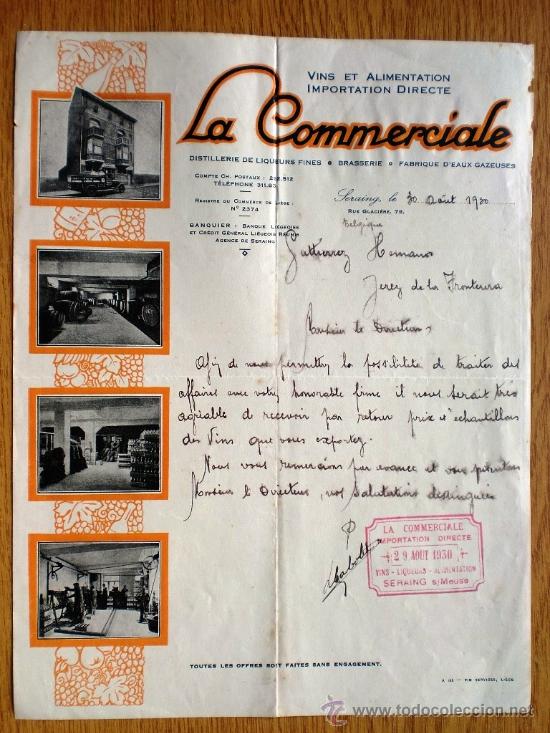 VINS ET ALIMENTATION
IMPORTATION DIRECTE
La Commerciale
DISTILLERIE DE LIQUEURS FINES • BRASSERIE • FABRIQUE D'EAUX GAZEUSES
COMPTE CH. POSTAUX :
TÉLÉPHONE 311.83
REGISTRE DU COMMERCE DE LIÈGE :
N° 2374
BANQUIER : BANQUE LIÉGEOISE
ET CRÉDIT GÉNÉRAL LIÉGEOIS RÉUNIS
AGENCE DE SERAING
Seraing, le 30 Août 1930
RUE GLACIÈRE, 78.
Belgique
Guttierrez Hermanos
Jerez de la Fronteura
Monsieur le Directeur,
Afin de nous permettre la possibilité de traiter des
affaires avec votre honorable firme il nous serait très
agréable de recevoir par retour prix et échantillons
des Vins que vous exportez.
Nous vous remercions par avance et vous présentons
Monsieur le Directeur, nos salutations distinguées
LA COMMERCIALE
IMPORTATION DIRECTE
29 AOUT 1930
VINS - LIQUEURS - ALIMENTATION
SERAING s/MEUSE
TOUTES LES OFFRES SONT FAITES SANS ENGAGEMENT.
todocoleccion
www.todocoleccion.net